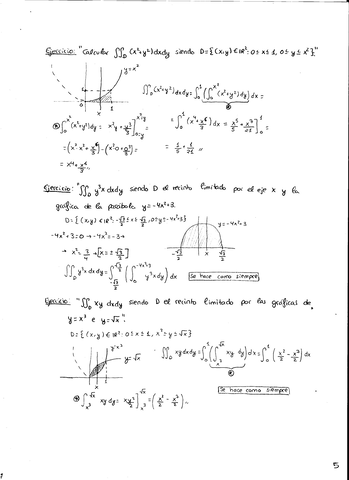 Ejercicio: "Calcular ∬_D (x²+y²)dxdy siendo D={(x,y)∈ℝ²: 0≤x≤1, 0≤y≤x²}."
y=x²
∬_D (x²+y²)dxdy = ∫₀¹ (∫₀^{x²} (x²+y²)dy) dx =
∫₀^{x²} (x²+y²)dy = x²y + y³/3 ]_{0=y}^{x²=y}
= ∫₀¹ (x⁴ + x⁶/3) dx = x⁵/5 + x⁷/21 ]₀¹
= (x²x² + x⁶/3) - (x²·0 + 0³/3) =
= 1/5 + 1/21
= x⁴ + x⁶/3
Ejercicio: "∬_D y³x dxdy siendo D el recinto limitado por el eje x y la
gráfica de la parábola y=-4x²+3.
D={(x,y)∈ℝ²: -√3/2≤x≤√3/2, 0≤y≤-4x²+3}
y=-4x²+3
-4x²+3=0 → -4x²=-3 →
→ x²=3/4 → x=±√3/2
-√3/2 x √3/2
∬_D y³x dxdy = ∫_{-√3/2}^{√3/2} (∫₀^{-4x²+3} y³x dy) dx
Se hace como siempre
Ejercicio: "∬_D xy dxdy siendo D el recinto limitado por las gráficas de
y=x³ e y=√x".
D={(x,y)∈ℝ²: 0≤x≤1, x³≤y≤√x}
y=x³
y=√x
∬_D xy dxdy = ∫₀¹ (∫_{x³}^{√x} xy dy) dx = ∫₀¹ (x²/2 - x⁷/2) dx
Se hace como siempre
∫_{x³}^{√x} xy dy = x y²/2 ]_{x³}^{√x} = (x²/2 - x⁷/2)
5